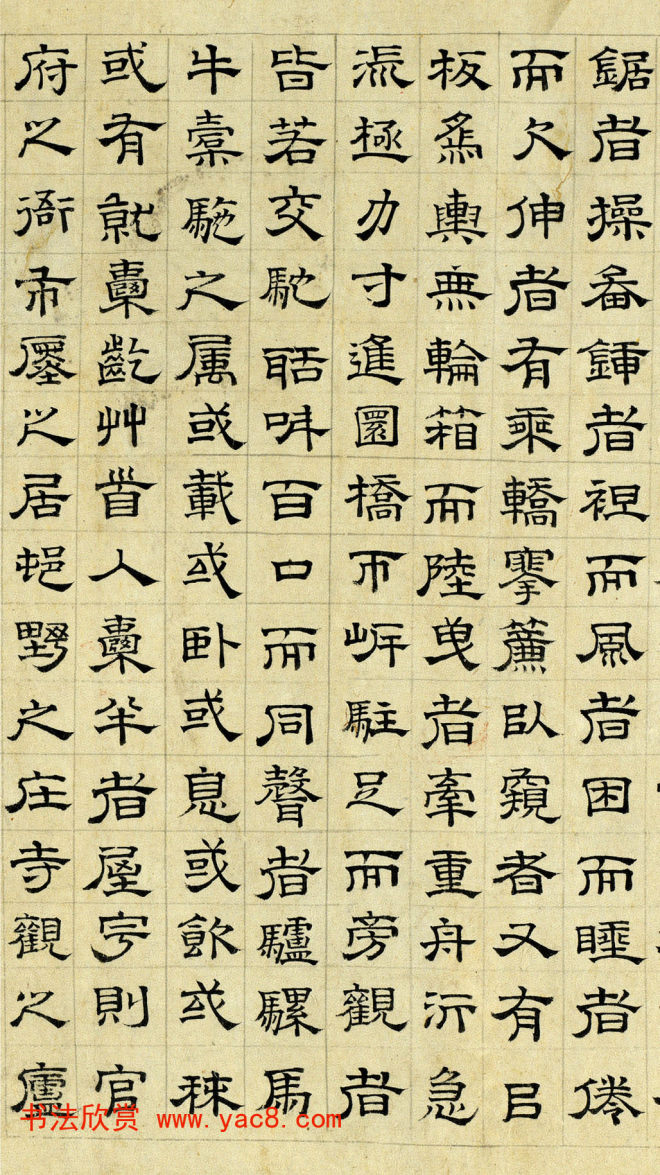 鋸者操畚鍤者袒而風者困而睡者倦
而欠伸者有乘轎搴簾以窺者又有以
板為輿無輪箱而陸曳者牽重舟泝急
流極力寸進圜橋帀岸駐足而旁觀者
皆若交馳聒叫百口而同聲者驢騾馬
牛橐駞之属或載或卧或息或飲或秣
或有就橐齕艸首入橐半者屋宇則官
府之衙市廛之居邨野之庄寺觀之廬
书法欣赏 www.yac8.com